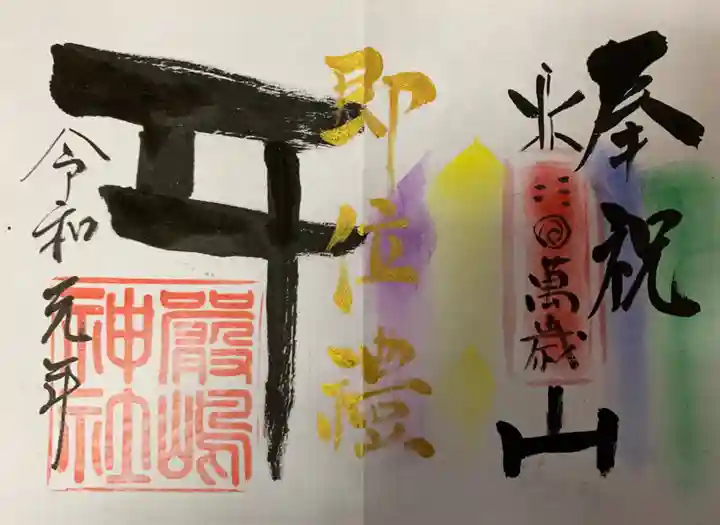 奉祝
萬歳
即位禮
令和元年
嚴嶋神社